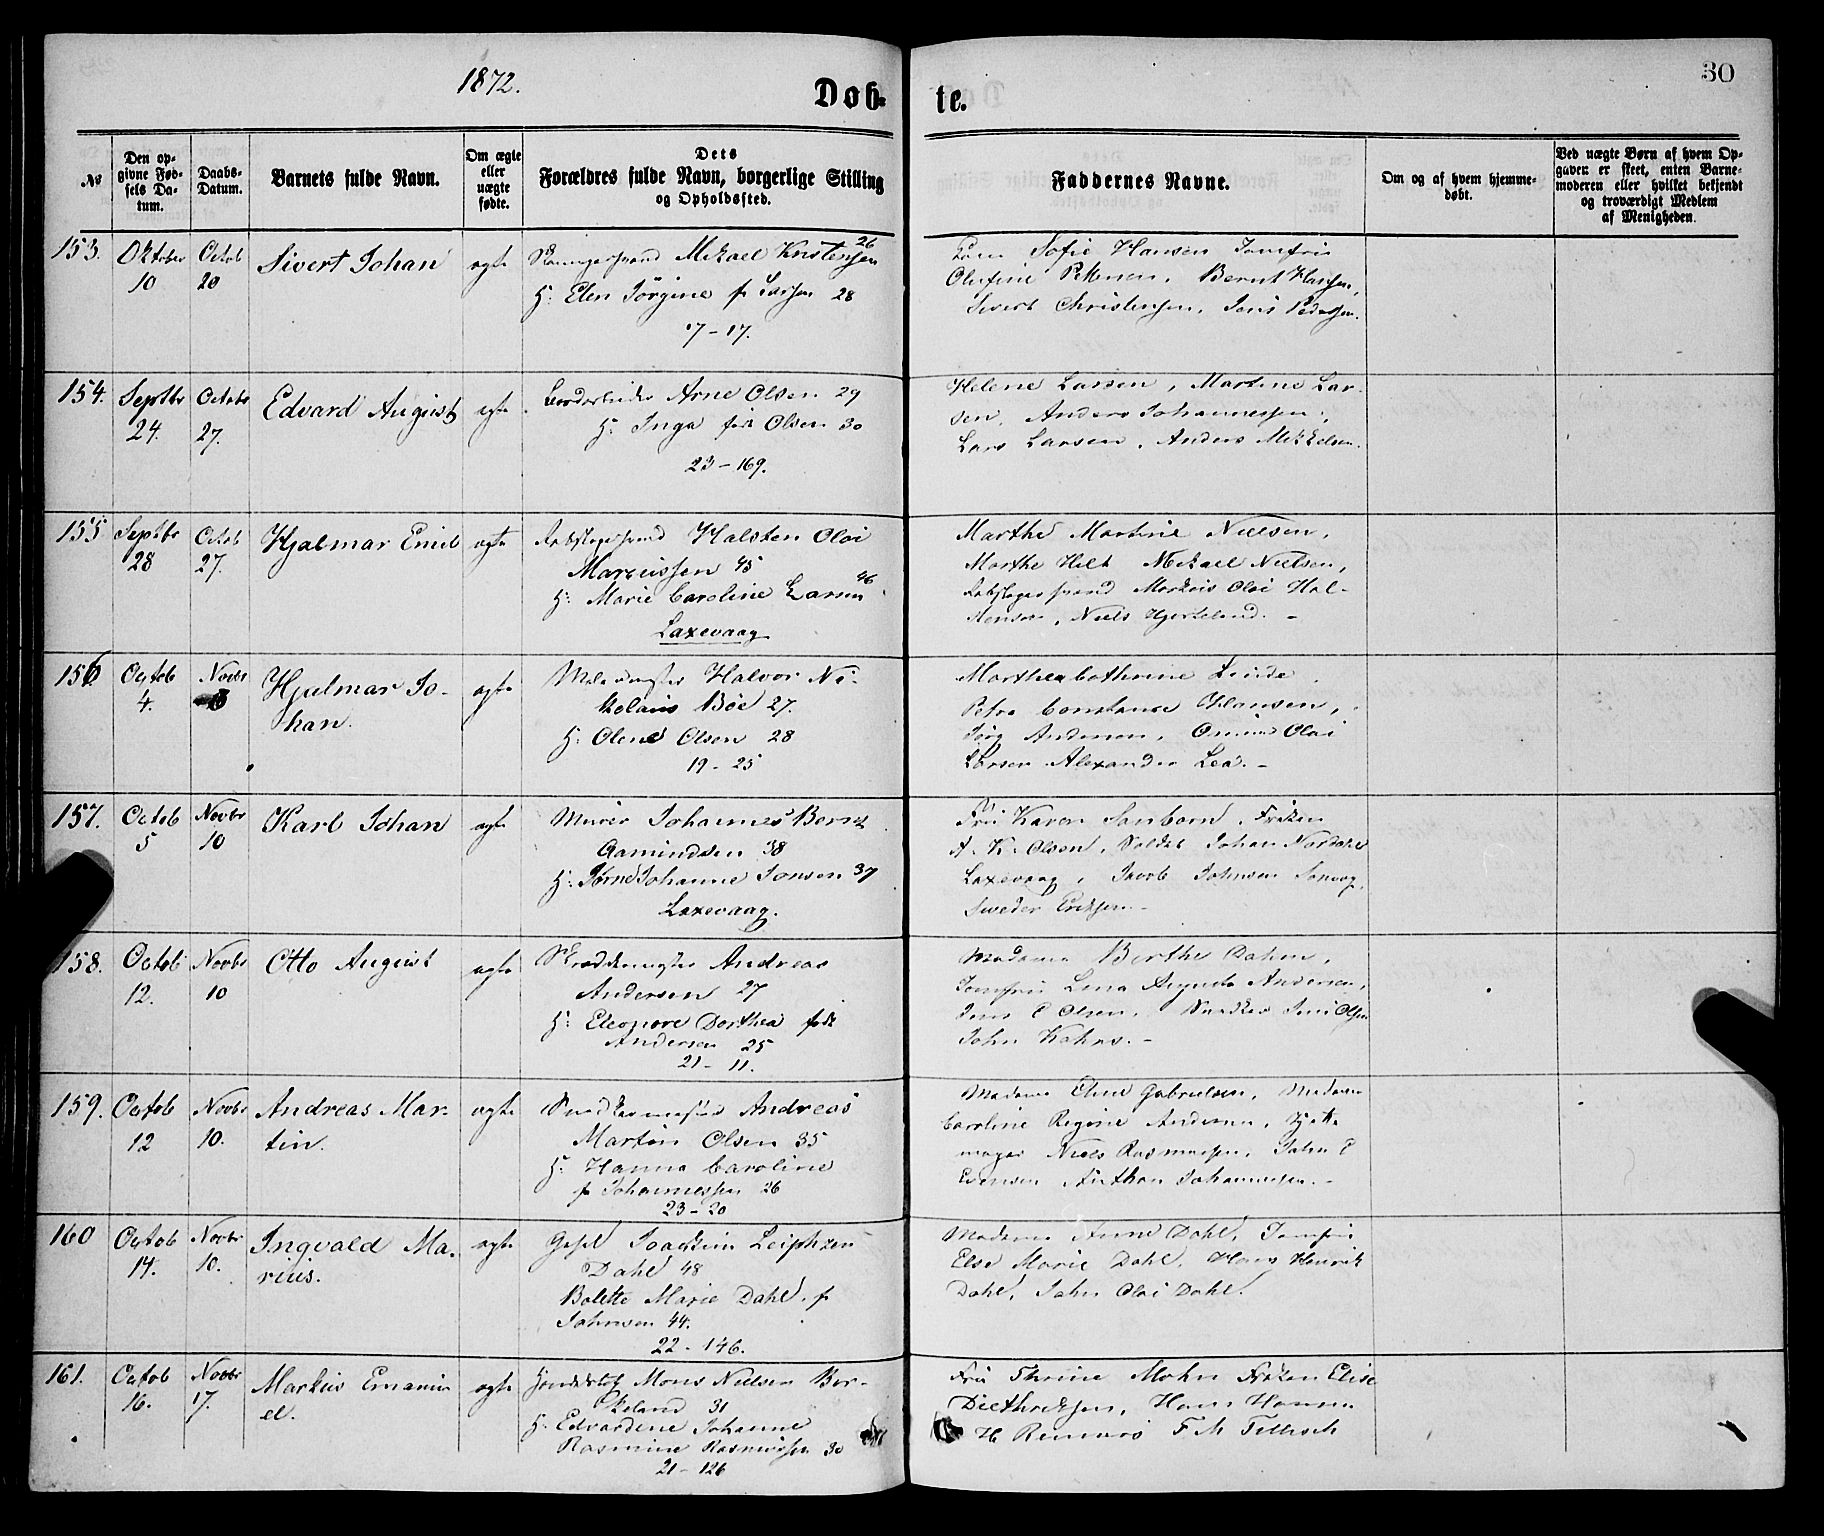 1872.
Døb-
te.
30
No
Den op-
givne Fød-
sels Da-
tum.
Daabs-
Datum.
Barnets fulde Navn.
Om ægte
eller
uægte
fødte.
Dets
Forældres fulde Navn, borgerlige Stilling
og Opholdssted.
Faddernes Navne.
Om og af hvem hjemme-
døbt.
Ved uægte Børn af hvem Op-
gaven er skeet, enten Barne-
moderen eller hvilket bekjendt
og troværdigt Medlem
af Menigheden.
153.
Oktober
10
Octob
20
Sivert Johan
ægte
Mikael Kristensen 26
H: Elen Jørgine f. Larsen 28
7-17.
Sofie Hansen Jomfru
Olufine Bernt Hansen,
Sivert Christensen, Jens Pedersen.
154.
Septbr
24.
Octobr
27.
Edvard August
ægte
Arne Olsen 29
H: Inga født Olsen 30
23-169.
Helene Larsen, Martine Lar-
sen, Anders Johannessen,
Lars Larsen, Anders Mikkelsen.
155
Septbr
28
Octob
27.
Hjalmar Emil
ægte
Halsten Olai
Marcussen 45
H: Marie Caroline Larsen 46
Laxevaag
Marthe Martine Nielsen,
Marthe Mikael Nielsen,
Markus Olai Hal-
stensen, Niels Hjertelund.-
156
Octob
4.
Novbr
3
Hjalmar Jo-
han.
ægte
Halvor Ni-
kolaus Bøe 27.
H: Olene Olsen 28
19-25
Marthea Cathrine Linde
Petra Constance Hansen,
Andersen, Olai
Larsen Alexander Lea.-
157.
Octob
5
Novbr
10
Karl Johan
ægte
Murer Johannes Bernt
Aamundsen 38
H: Johanne Jonsen 37
Laxevaag.
Fru Karen Sanborn, Frøken
A. K. Olsen, Johan
Laxevaag, Jacob Johnsen
Eriksen.-
158.
Octob
12.
Novbr
10
Otto August
ægte
Skræddermester Andreas
Andersen 27
H: Eleonore Dorthea født
Andersen 25
21-11.
Madame Berthe Dahm,
Jomfru Lina Augusta Andersen,
Jens E Olsen, Snedker Jens Olsen
John Kahrs.-
159.
Octob
12
Novbr
10.
Andreas Mar-
tin.
ægte
Snedkermester Andreas
Martin Olsen 35
H: Hanna Caroline
f. Johannessen 26
23-20
Madame Eline Gabrielsen, Madame
Caroline Regine Andersen,
Niels Rasmussen, John E
Evensen Johannesen.-
160
Octob
14.
Novbr
10.
Ingvald Ma-
rius.
ægte
Joackim
Dahl 48
Bolette Marie Dahl. f
Johnsen 44.
22-146.
Madame Anne Dahl, Jomfru
Else Marie Dahl, Hans Henrik
Dahl, John Olai Dahl.
161.
Octob
16.
Novbr
17.
Markus Emanu-
el.
ægte
Mons Nielsen Bir-
keland 31
H: Edvardine Johanne
Rasmine Rasmussen 30
21-126
Fru Thrine Mohn Frøken Elise
Diethrichsen, Hans Hansen
H Reimers F. M